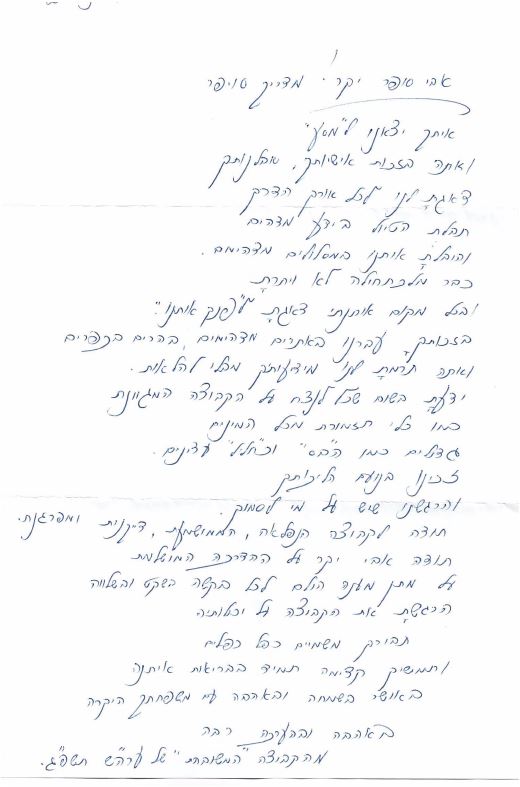 אבי סופר יקר. מדריך סופר
איתך יצאנו ל"מסע"
ואתה בזכות אישיותך, סבלנותך
דאגת לנו לכל אורך הדרך
תבלת הטיול בידע מדהים
והובלת אותנו במסלולים מדהימים.
כבר מלכתחילה לא ויתרת
ובכל מקום איתנת דאגת "לפנק אותנו".
בזכותך עברנו באתרים מדהימים, בהרים בכפרים
ואתה תרמת לנו מידעותך מבלי להלאות.
ידעת בשום שכל לנצח על הקבוצה המגוונת
כמו כלי תזמורת מכל המינים
גדולים כמו ה"בס" וכ"חליל" עדינים.
זכינו בנועם הליכותך
והרגשנו שיש על מי לסמוך.
תודה לקבוצה הנפלאה, הממושמעת, דייקנית ומפרגנת.
תודה אבי יקר על ההדרכה המושלמת
על מתן מענה הולם לכל בקשה בשקט ובשלווה
הרגשת את הקבוצה על יכולותיה
תבורך משמיים כפל כפליים
ותמשיך קדימה תמיד בבריאות איתנה
באושר בשמחה ובאהבה עם משפחתך היקרה
באהבה ובהערכה רבה
מהקבוצה "המשובחת" של ערה"ש תשפ"ג.